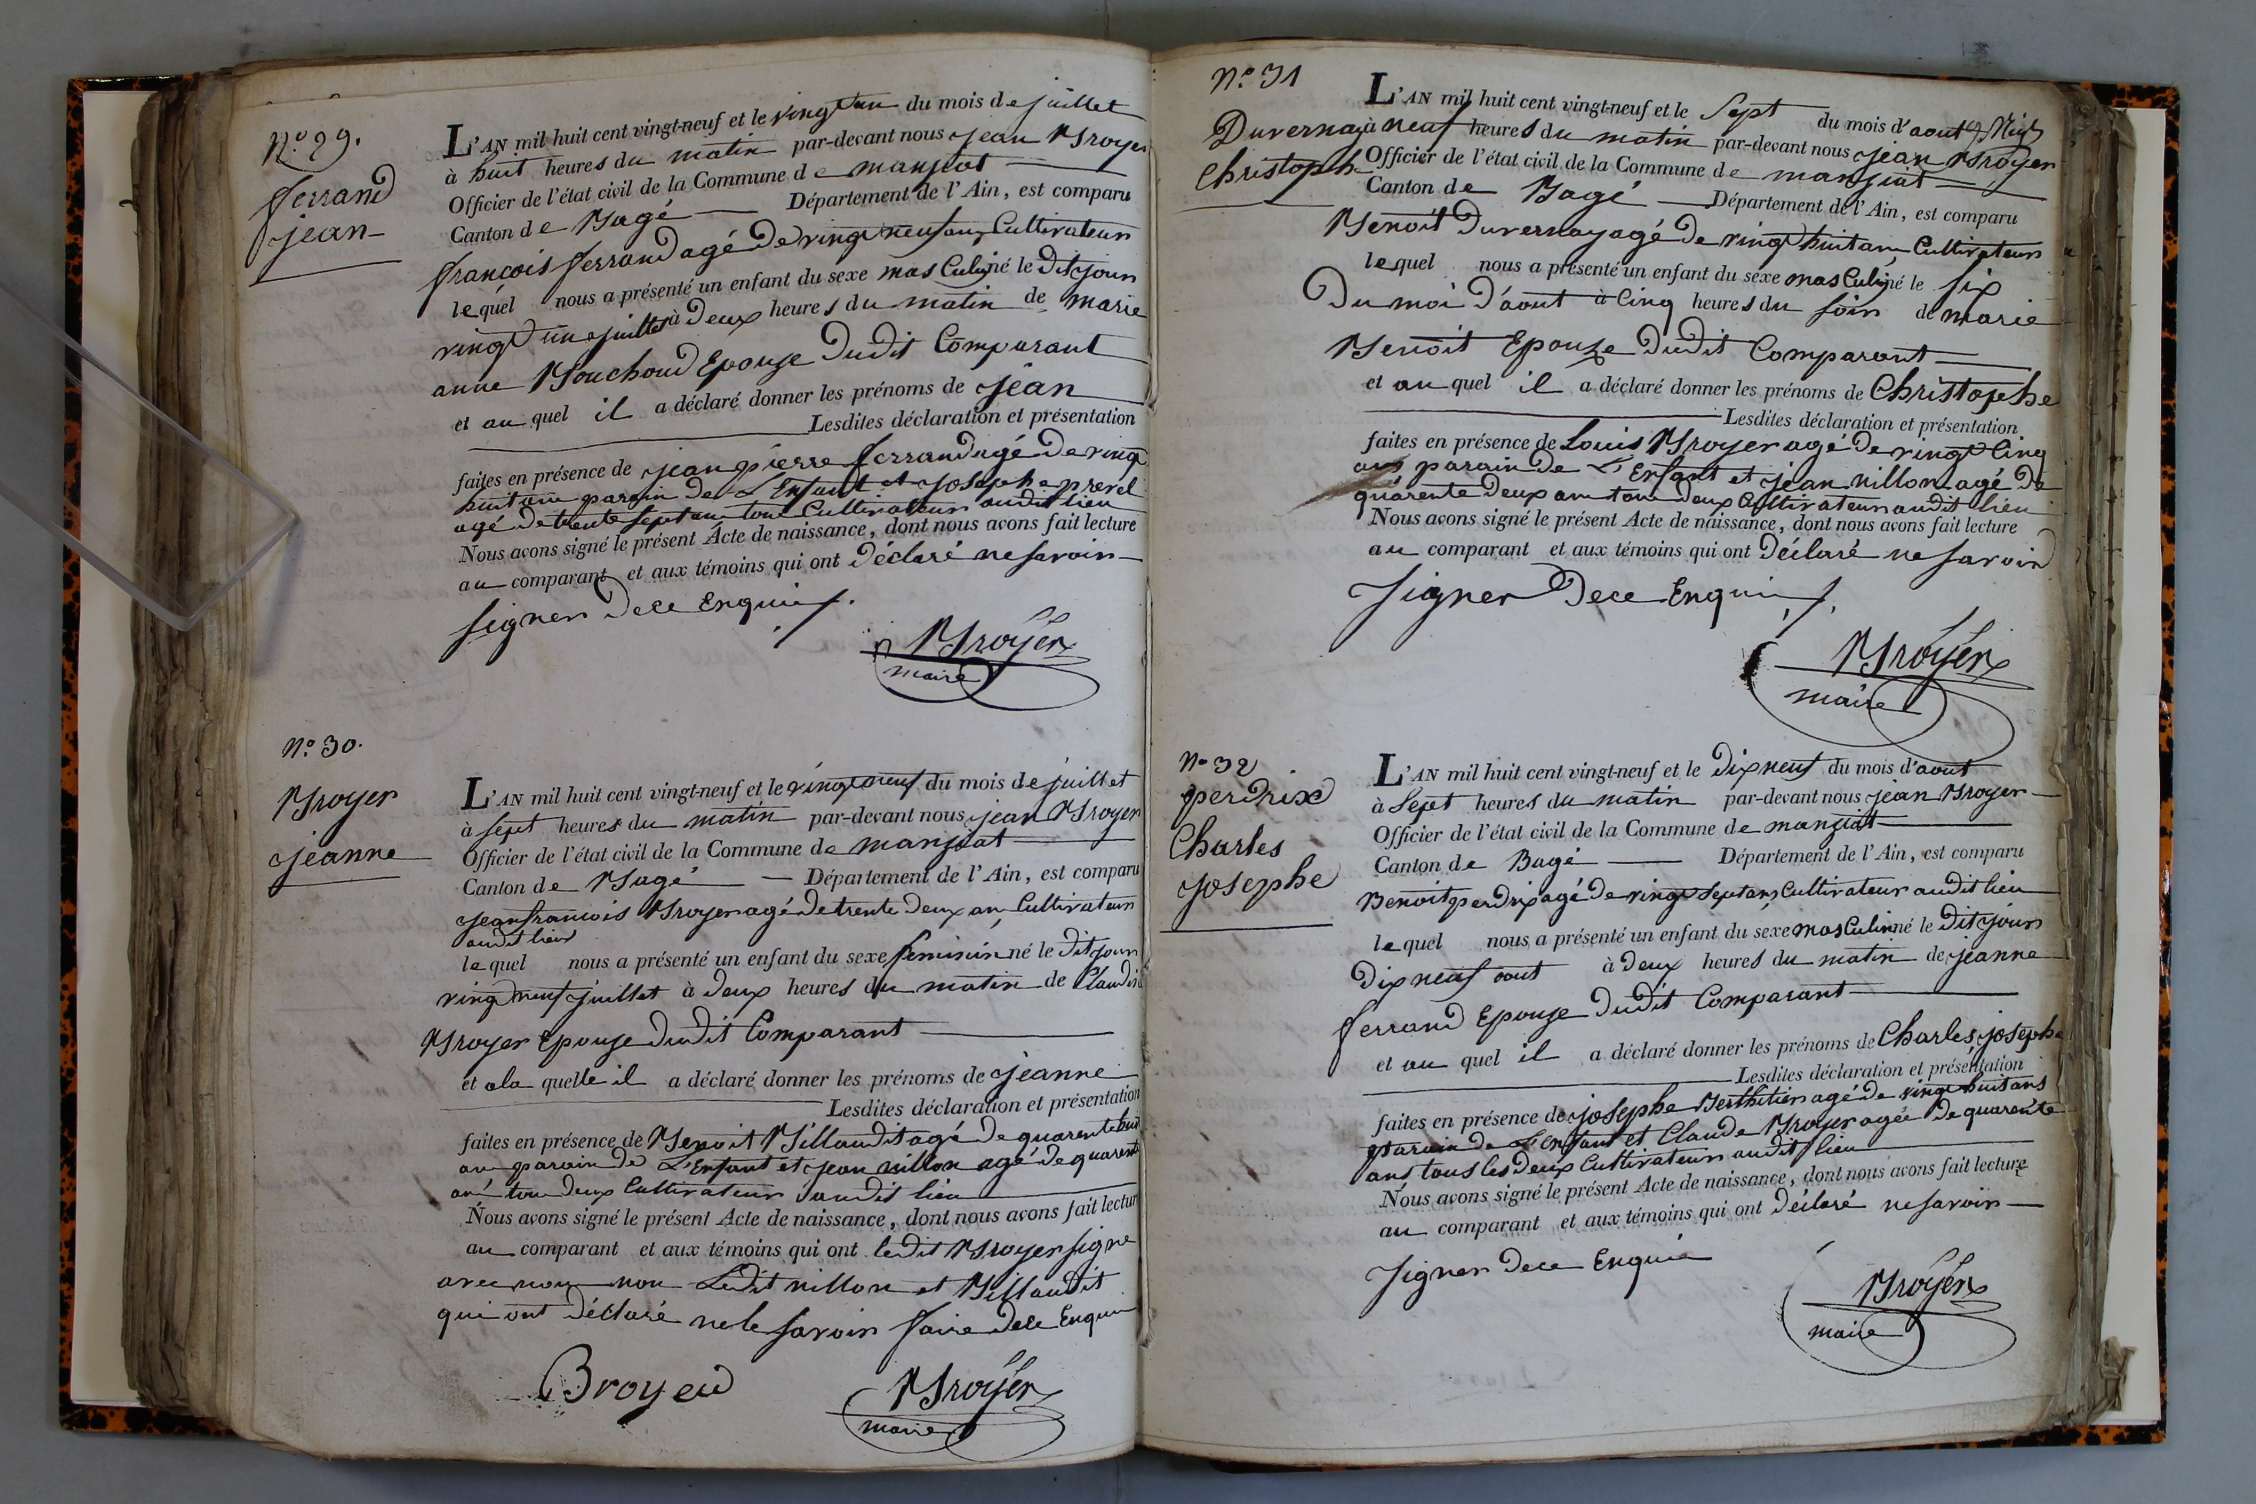 N.° 29.
ferrand
jean
L'AN mil huit cent vingt-neuf et le vingt un du mois de juillet
à huit heures du matin par-devant nous jean Broyer
Officier de l'état civil de la Commune de manziat
Canton de Bagé Département de l'Ain, est comparu
françois ferrand agé de vingt neuf ans Cultivateur
lequel nous a présenté un enfant du sexe masculin né le dit jour
vingt un juillet à deux heures du matin de marie
anne Bouchoud Epouse dudit Comparant
et au quel il a déclaré donner les prénoms de jean
Lesdites déclaration et présentation
faites en présence de jean pierre ferrand agé de vingt
huit ans parain de L'Enfant et josephe prevel
agé de trente sept ans tous Cultivateurs audit lieu
Nous avons signé le présent Acte de naissance, dont nous avons fait lecture
au comparant et aux témoins qui ont déclaré ne savoir
signer de ce Enquis.
Broyer
maire
N.° 30.
Broyer
jeanne
L'AN mil huit cent vingt-neuf et le vingt neuf du mois de juillet
à sept heures du matin par-devant nous jean Broyer
Officier de l'état civil de la Commune de manziat
Canton de Bagé Département de l'Ain, est comparu
jean francois Broyer agé de trente deux an Cultivateur
audit lieu
lequel nous a présenté un enfant du sexe feminin né le dit jour
vingt neuf juillet à deux heures du matin de Claudine
Broyer Epouse dudit Comparant
et a la quelle il a déclaré donner les prénoms de jeanne
Lesdites déclaration et présentation
faites en présence de Benoit Billaudit agé de quarente huit
an parain de L'Enfant et jean nillon agé de quarente
ans tou deux Cultivateur audit lieu
Nous avons signé le présent Acte de naissance, dont nous avons fait lecture
au comparant et aux témoins qui ont ledit Broyer signe
avec nou non Ledit nillon et Billaudit
qui ont déclaré ne le savoir faire de ce Enqui
Broyer
Broyer
maire
N.° 31
Duvernay
Christophe
L'AN mil huit cent vingt-neuf et le sept du mois d'aout
à neuf heures du matin par-devant nous jean Broyer
Officier de l'état civil de la Commune de manziat
Canton de Bagé Département de l'Ain, est comparu
Benoit Duvernay agé de vingt huit an Cultivateur
lequel nous a présenté un enfant du sexe masculin né le six
Du moi d'aout à Cinq heures du soir de marie
Benoit Epouze dudit Comparant
et au quel il a déclaré donner les prénoms de Christophe
Lesdites déclaration et présentation
faites en présence de Louis Broyer agé de vingt Cinq
ans parain de L'Enfant et jean nillon agé de
quarente deux an tou deux Cultivateur audit lieu
Nous avons signé le présent Acte de naissance, dont nous avons fait lecture
au comparant et aux témoins qui ont déclaré ne savoir
signer De ce Enquis.
Broyer
maire
N° 32
perdrix
Charles
josephe
L'AN mil huit cent vingt-neuf et le dix neuf du mois d'aout
à sept heures du matin par-devant nous jean Broyer
Officier de l'état civil de la Commune de manziat
Canton de Bagé Département de l'Ain, est comparu
Benoit perdrix agé de vingt sept ans Cultivateur audit lieu
lequel nous a présenté un enfant du sexe masculin né le dit jour
dix neuf aout à deux heures du matin de jeanne
ferrand Epouse dudit Comparant
et au quel il a déclaré donner les prénoms de Charles josephe
Lesdites déclaration et présentation
faites en présence de josephe Berthitier agé de vingt huit ans
parain de L'Enfant et Claude Broyer agée de quarente
ans tous les deux Cultivateur audit lieu
Nous avons signé le présent Acte de naissance, dont nous avons fait lecture
au comparant et aux témoins qui ont déclaré ne savoir
signer de ce Enquis
Broyer
maire